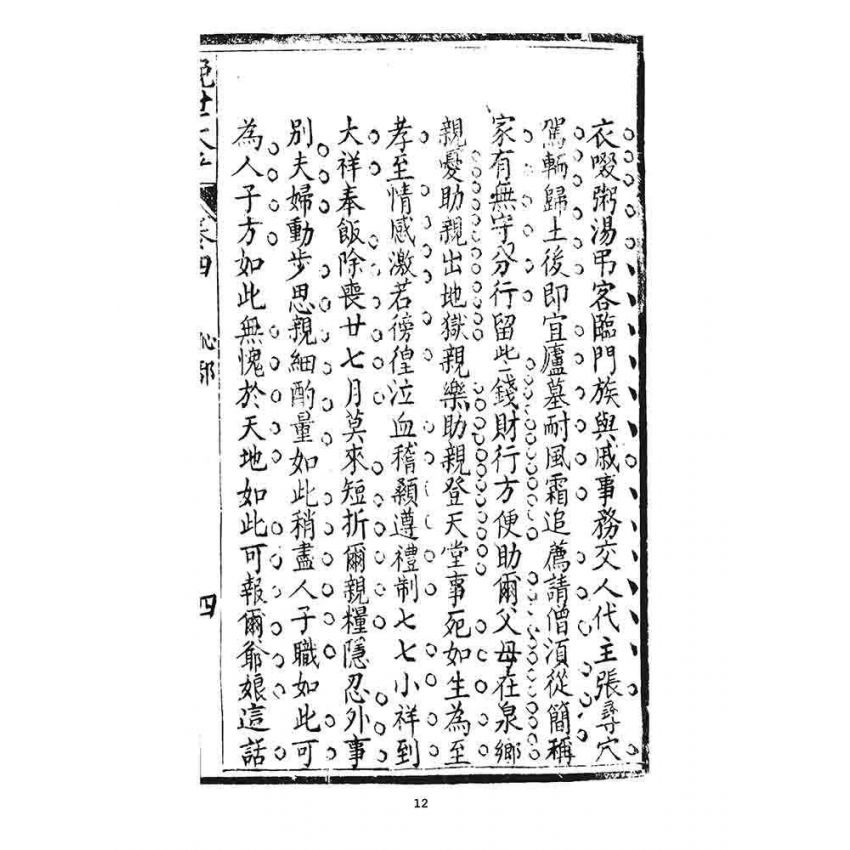 衣啜粥湯弔客臨門族與戚事務交人代主張尋穴
駕輀歸土後即宜廬墓耐風霜追薦請僧須從簡稱
家有無守分行留些錢財行方便助爾父母在泉鄉
親憂助親出地獄親樂助親登天堂事死如生為至
孝至情感激若徬徨泣血稽顙遵禮制七七小祥到
大祥奉飯除喪廿七月莫來短折爾親糧隱忍外事
別夫婦動步思親細酌量如此稍盡人子職如此可
為人子方如此無愧於天地如此可報爾爺娘這話
卷四
四
12